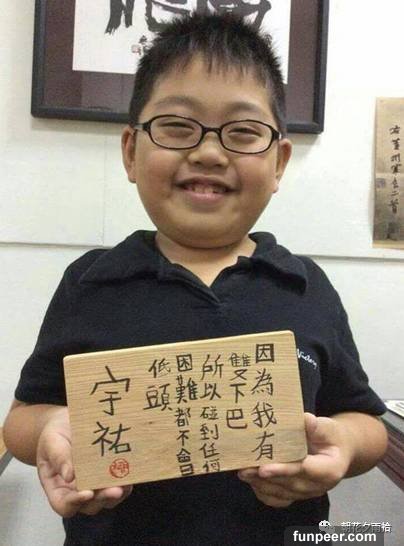 因為我有
雙下巴
所以碰到任何
困難都不會
低頭
宇祐
朝花夕雨拾
funpeer.com